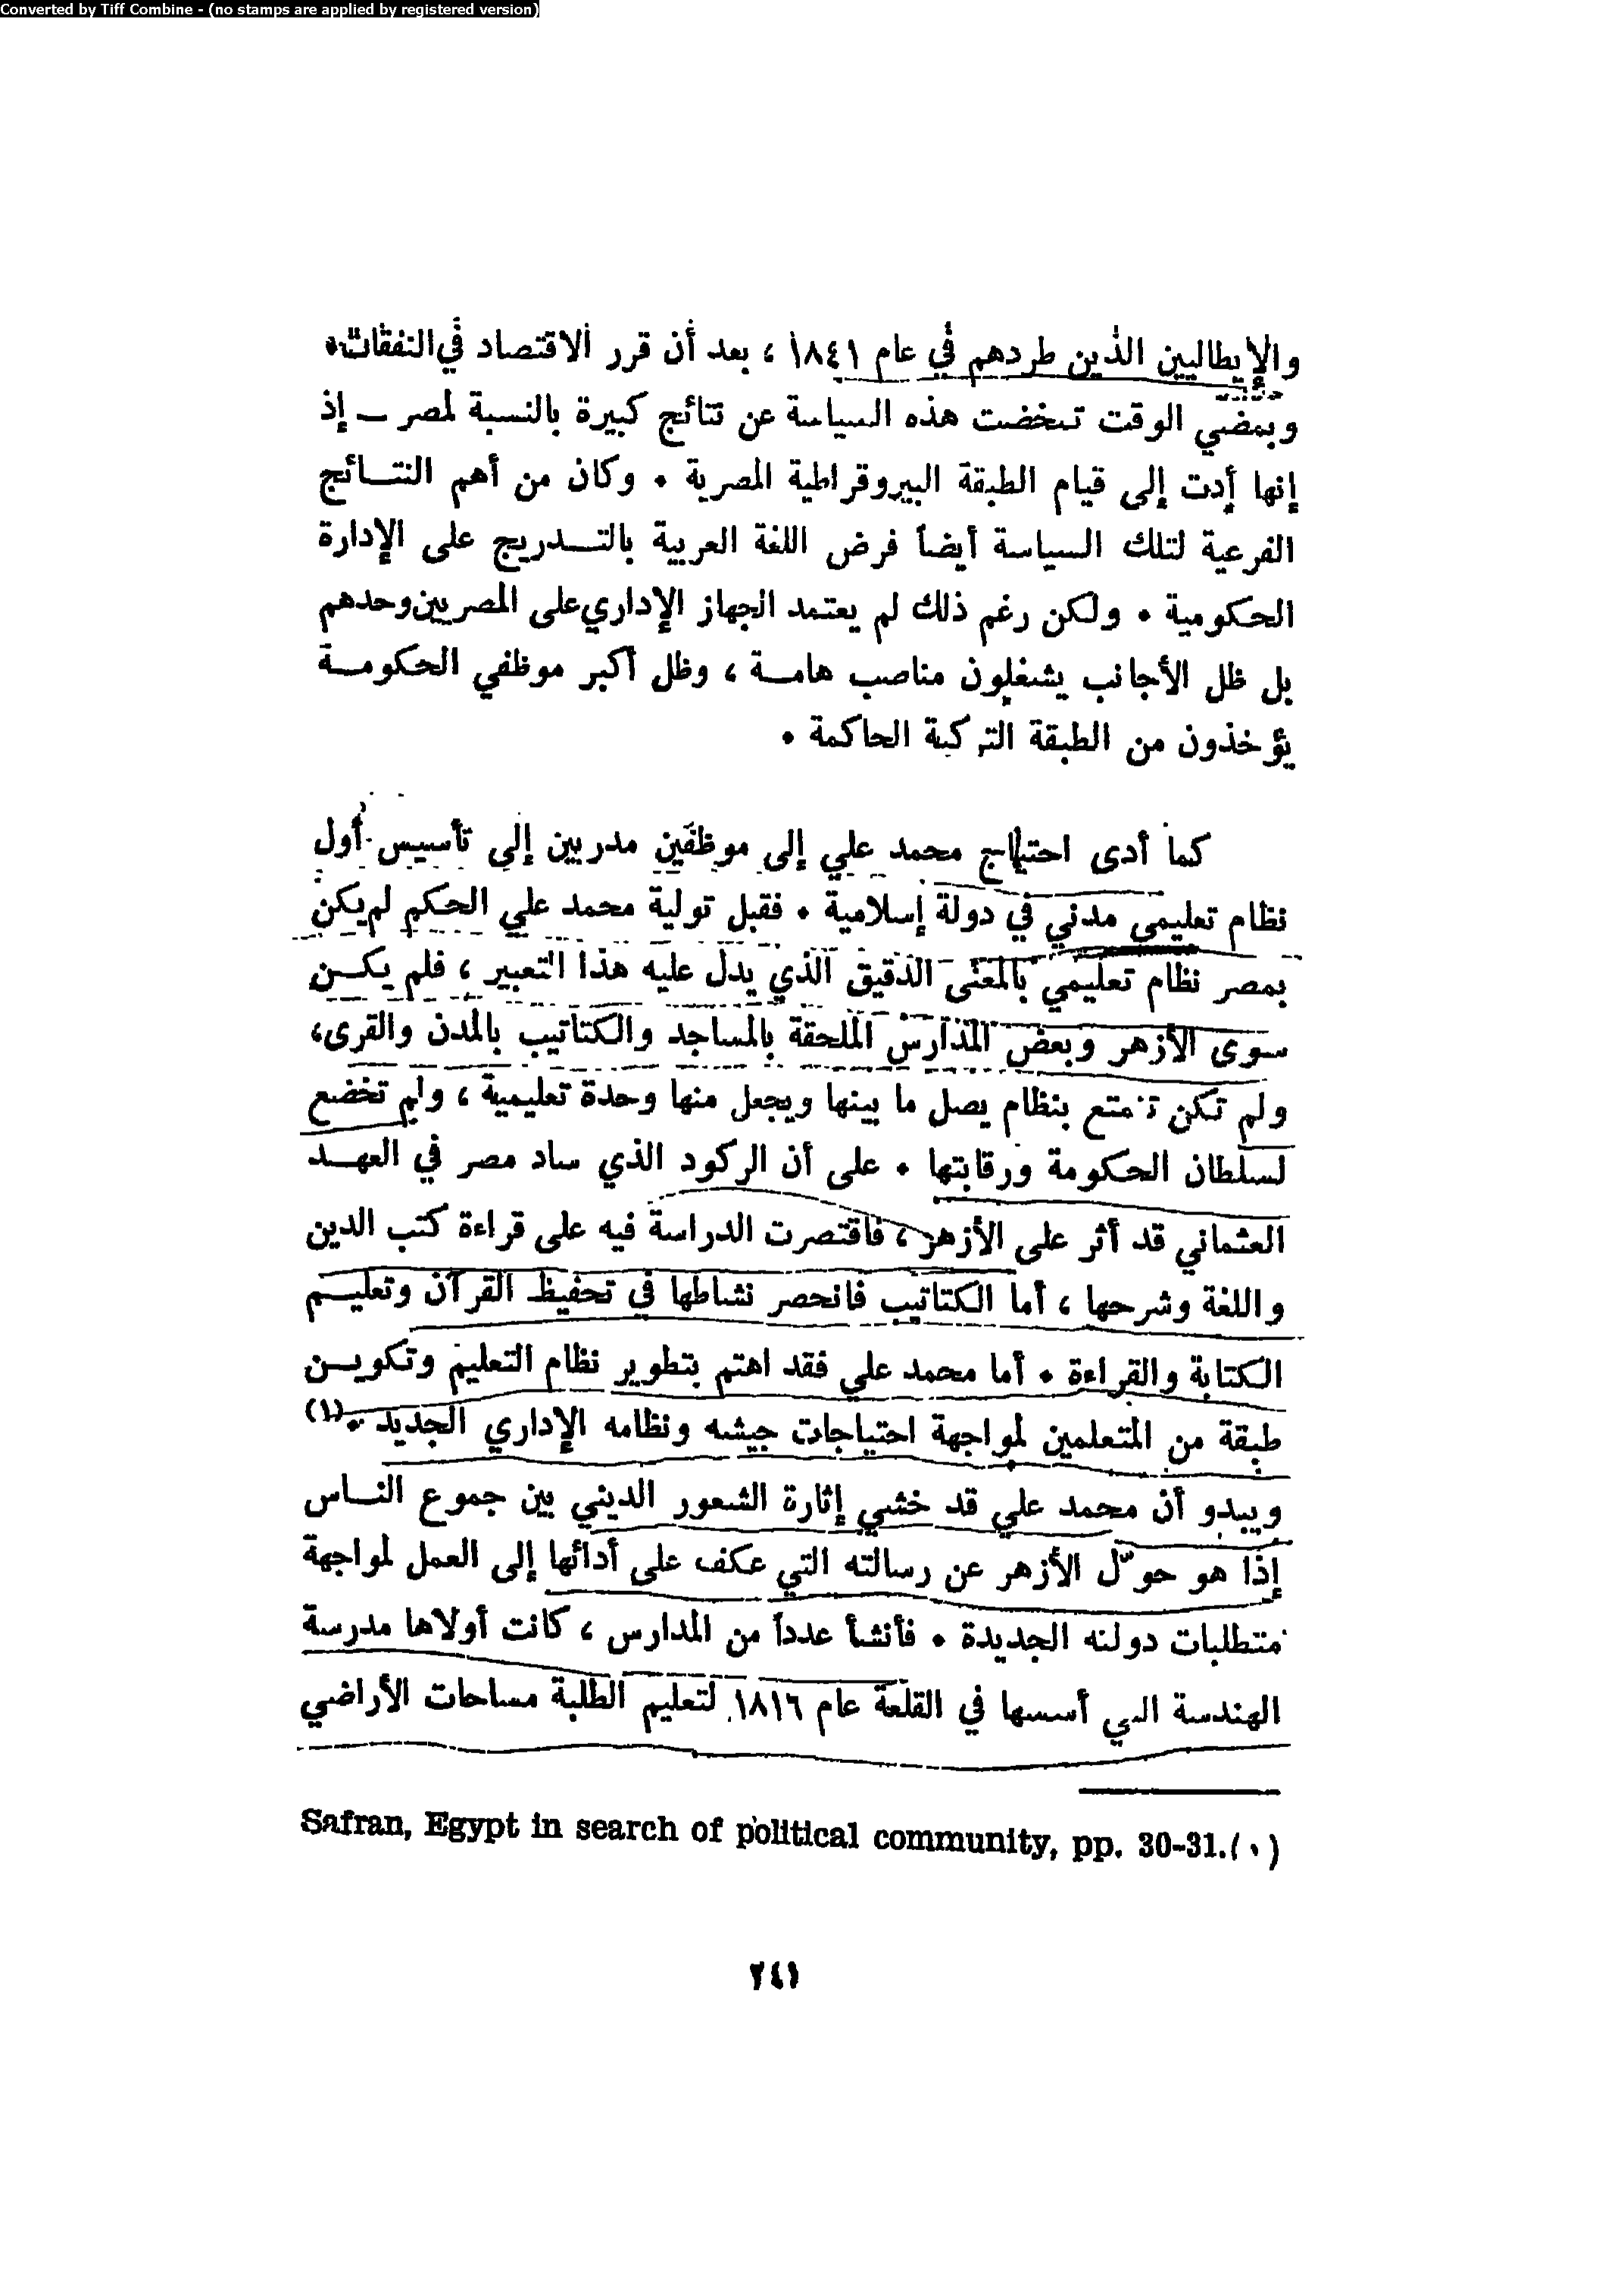 Converted by Tiff Combine - (no stamps are applied by registered version)
والإيطاليين الذين طردهم في عام ١٨٤١ ، بعد أن قرر الاقتصاد في النفقات٠
وبمضي الوقت تمخضت هذه السياسة عن نتائج كبيرة بالنسبة لمصر ــ إذ
إنها أدت إلى قيام الطبقة البيروقراطية المصرية ٠ وكان من أهم النتـــائج
الفرعية لتلك السياسة أيضاً فرض اللغة العربية بالتـــدريج على الإدارة
الحكومية ٠ ولكن رغم ذلك لم يعتمد الجهاز الإداري على المصريين وحدهم
بل ظل الأجانب يشغلون مناصب هامــة ، وظل أكبر موظفي الحكومــة
يؤخذون من الطبقة التركية الحاكمة ٠
كما أدى احتياج محمد علي إلى موظفين مدربين إلى تأسيس أول
نظام تعليمي مدني في دولة إسلامية ٠ فقبل تولية محمد علي الحكم لم يكن
بمصر نظام تعليمي بالمعنى الدقيق الذي يدل عليه هذا التعبير ، فلم يكــن
سوى الأزهر وبعض المدارس الملحقة بالمساجد والكتاتيب بالمدن والقرى،
ولم تكن تتمتع بنظام يصل ما بينها ويجعل منها وحدة تعليمية ، ولم تخضع
لسلطان الحكومة ورقابتها ٠ على أن الركود الذي ساد مصر في العهــد
العثماني قد أثر على الأزهر ، فاقتصرت الدراسة فيه على قراءة كتب الدين
واللغة وشرحها ، أما الكتاتيب فانحصر نشاطها في تحفيظ القرآن وتعليــم
الكتابة والقراءة ٠ أما محمد علي فقد اهتم بتطوير نظام التعليم وتكويــن
طبقة من المتعلمين لمواجهة احتياجات جيشه ونظامه الإداري الجديد ٠(١)
ويبدو أن محمد علي قد خشي إثارة الشعور الديني بين جموع النــاس
إذا هو حوّل الأزهر عن رسالته التي عكف على أدائها إلى العمل لمواجهة
متطلبات دولته الجديدة ٠ فأنشأ عدداً من المدارس ، كانت أولاها مدرسة
الهندسة التي أسسها في القلعة عام ١٨١٦ لتعليم الطلبة مساحات الأراضي
Safran, Egypt in search of political community, pp. 30-31.(١)
٢٤١